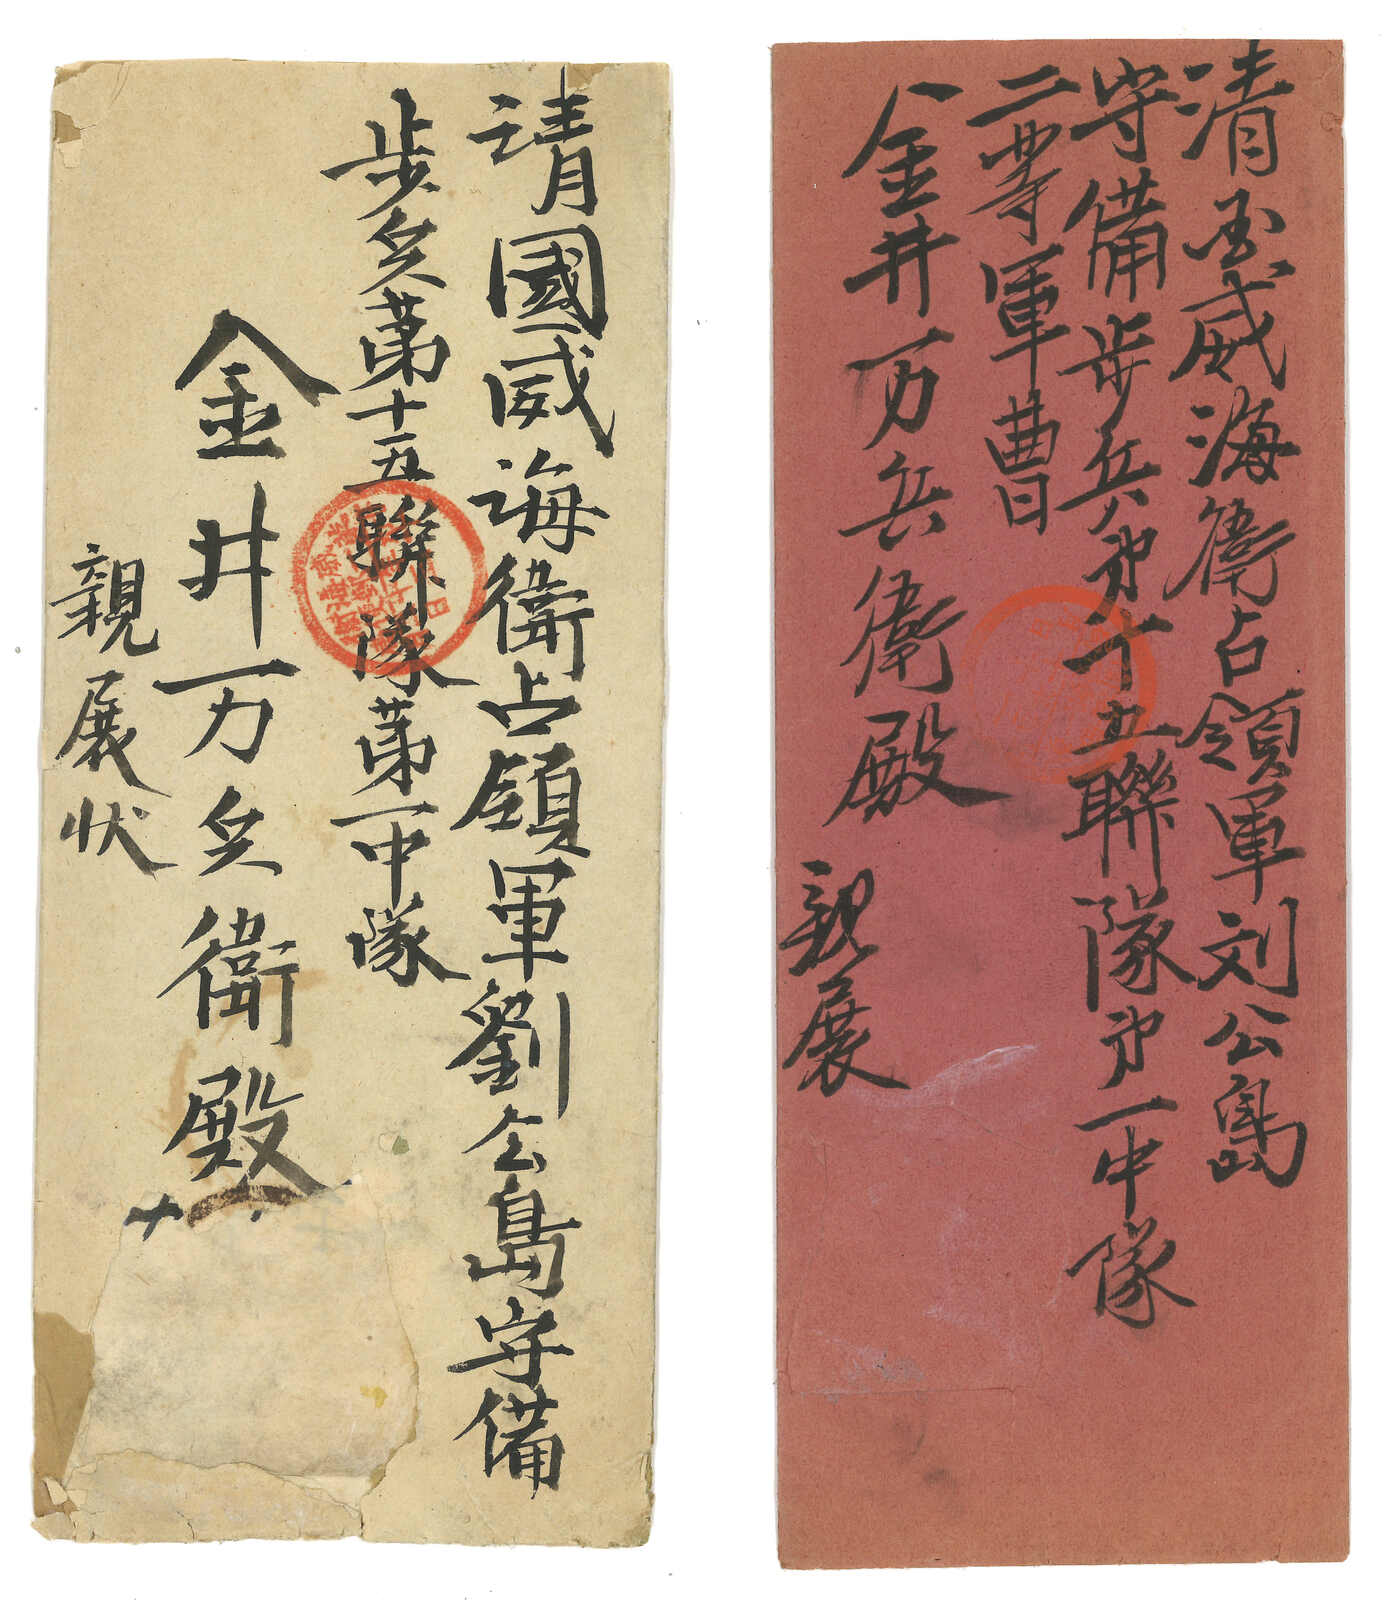 清國威海衛占領軍劉公島守備
歩兵第十五聯隊第一中隊
金井万兵衛殿
親展状
清国威海衛占領軍刘公島
守備歩兵第十五聯隊第一中隊
二等軍曹
金井万兵衛殿
親展